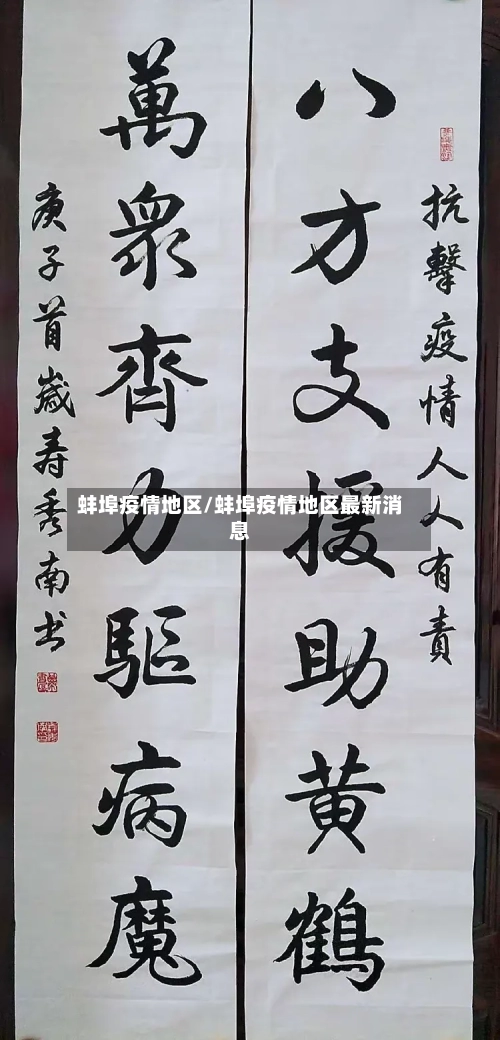 抗擊疫情人人有責
八方支援助黄鶴
萬眾齊力驅病魔
庚子首歲寿秀南书
蚌埠疫情地区/蚌埠疫情地区最新消
息